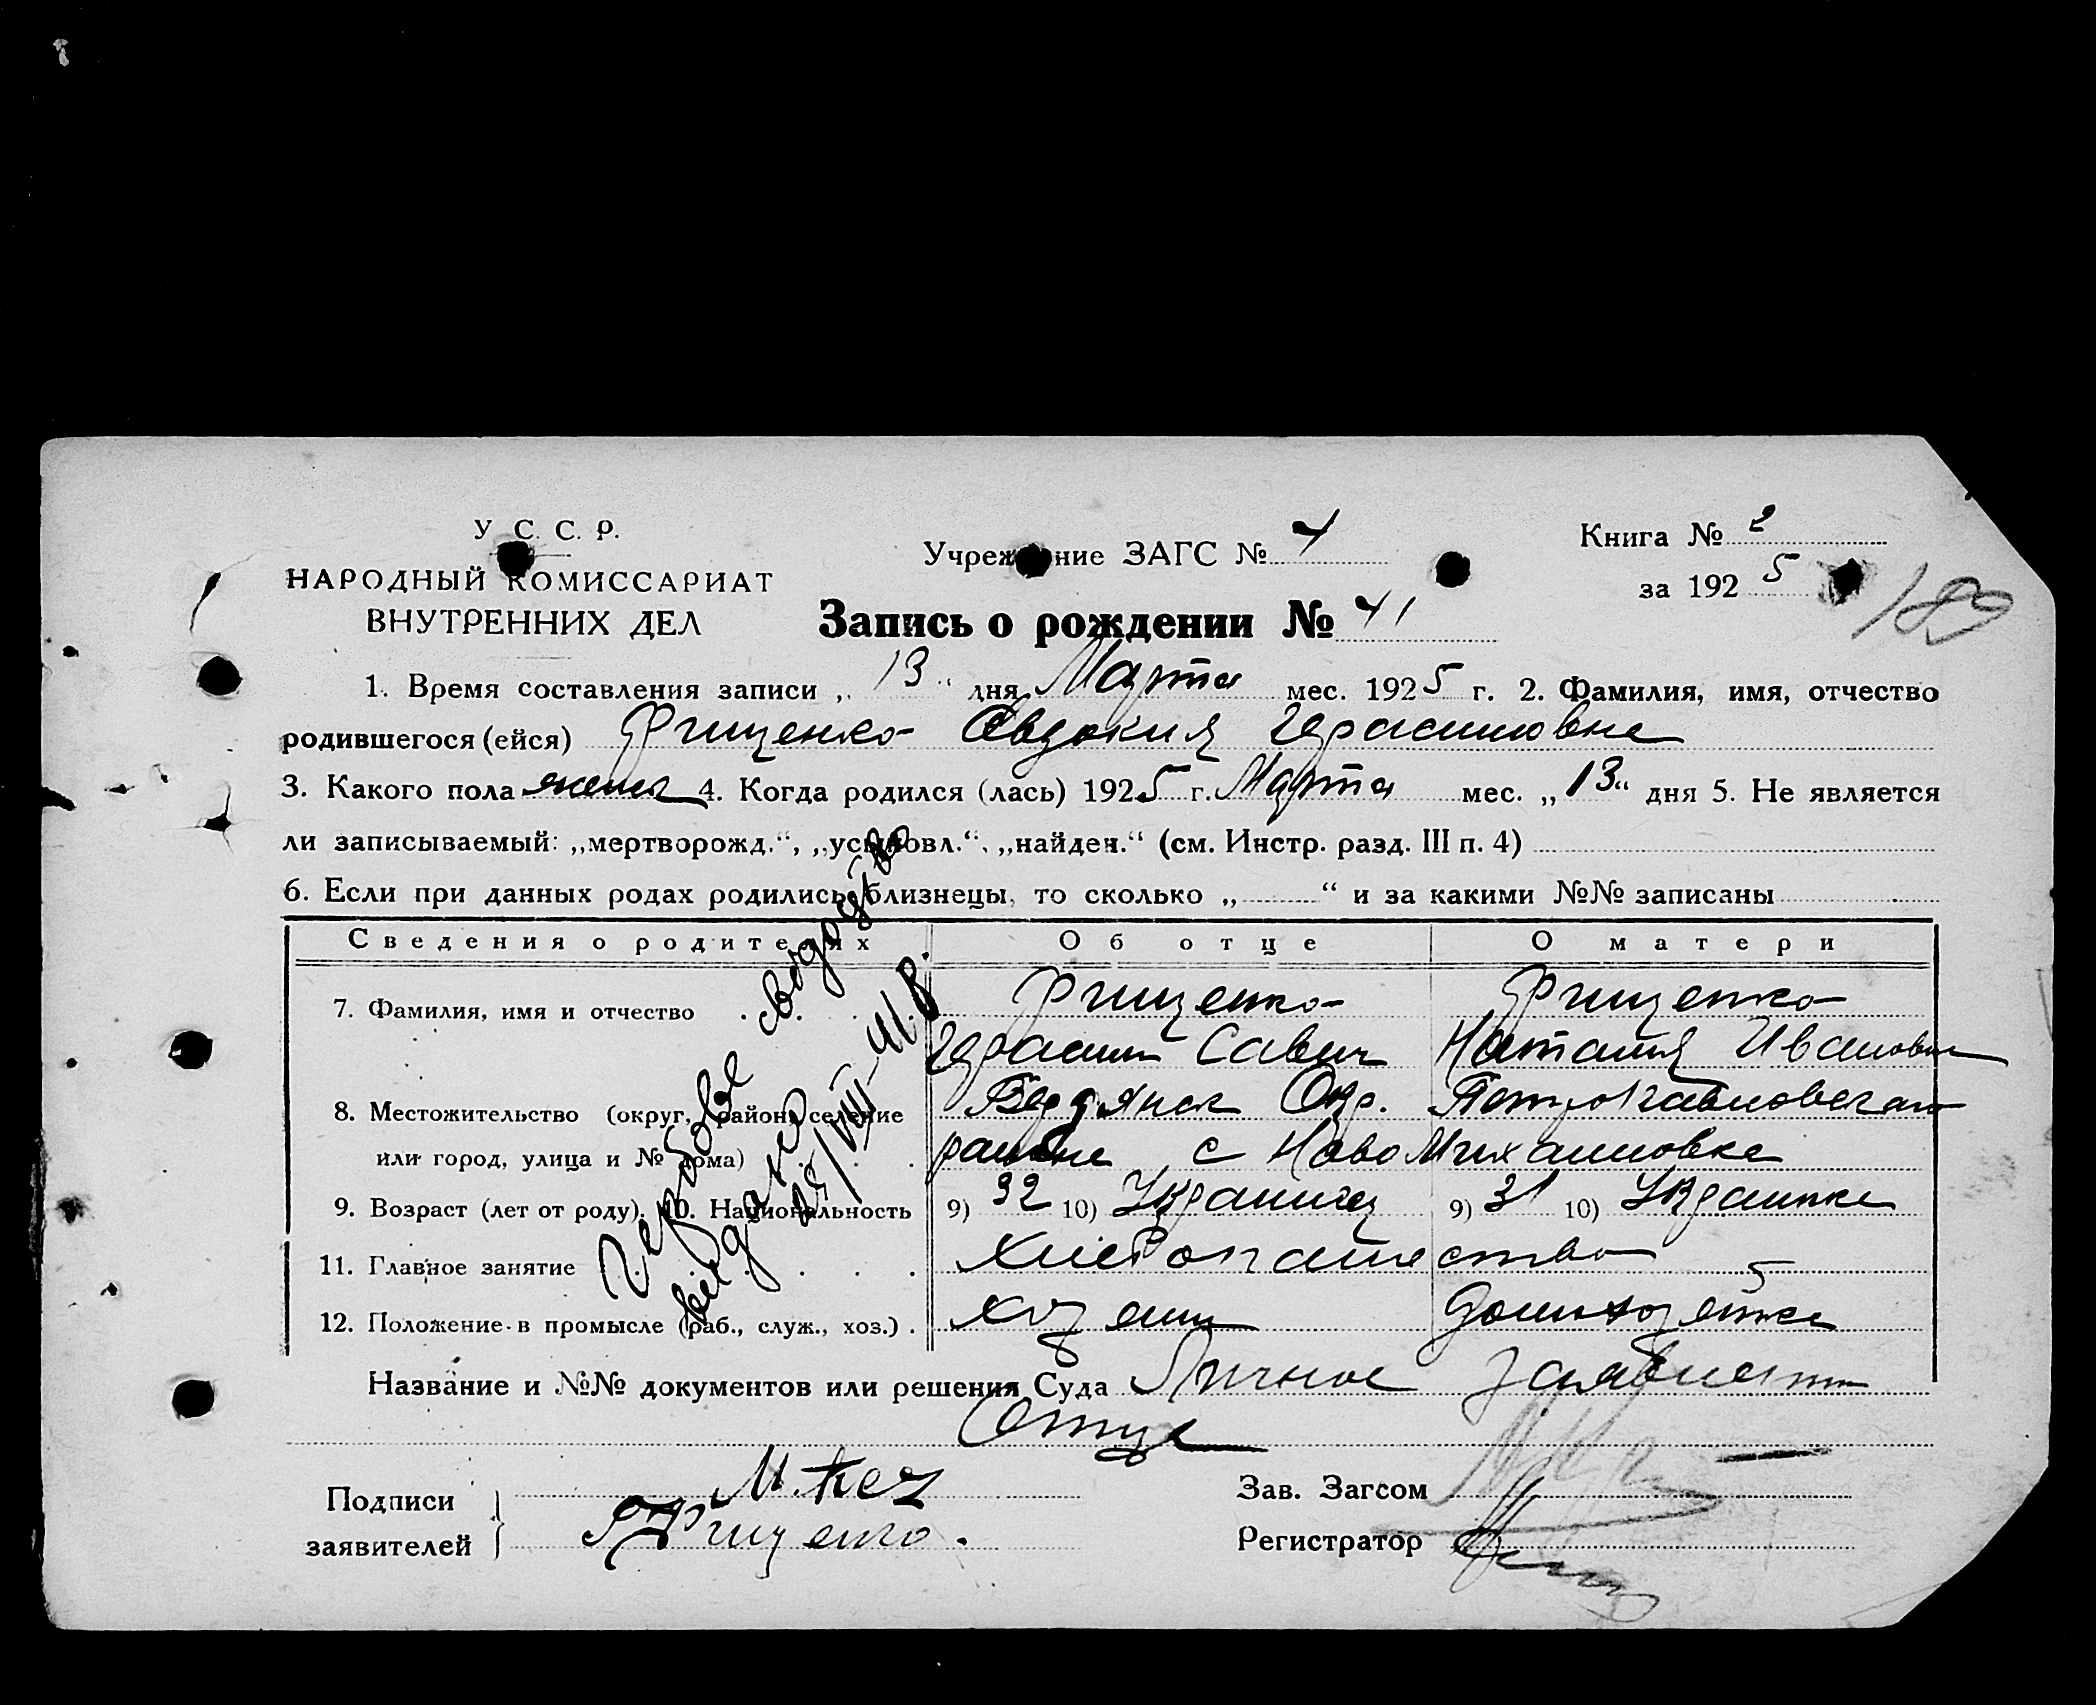 У. С. С. Р.
НАРОДНЫЙ КОМИССАРИАТ
ВНУТРЕННИХ ДЕЛ
Учреждение ЗАГС № 4
Книга № 2
за 1925
189
Запись о рождении № 41
1. Время составления записи „13“ дня Марта мес. 1925 г. 2. Фамилия, имя, отчество
родившегося (ейся) Фищенко Евдокия Герасимовна
3. Какого пола женск 4. Когда родился (лась) 1925 г. Марта мес. „13“ дня 5. Не является
ли записываемый: „мертворожд.“, „усыновл.“, „найден.“ (см. Инстр. разд. III п. 4)
6. Если при данных родах родились близнецы, то сколько „ “ и за какими №№ записаны
Сведения о родителях Об отце О матери
7. Фамилия, имя и отчество Фищенко Фищенко
Герасим Савич Наталия Ивановна
8. Местожительство (округ, район, селение Бердянск Окр. Петропавловского
или город, улица и № дома) района с Ново Михайловка
9. Возраст (лет от роду). 10. Национальность 9) 32 10) Украинец 9) 31 10) Украинка
11. Главное занятие Хлебопашество
12. Положение в промысле (раб., служ., хоз.) хозяин домохозяйка
Гербове свидоцтво
видано
Название и №№ документов или решения Суда Личное заявление
Отца
Подписи
заявителей
Фищенко.
Зав. Загсом
Регистратор